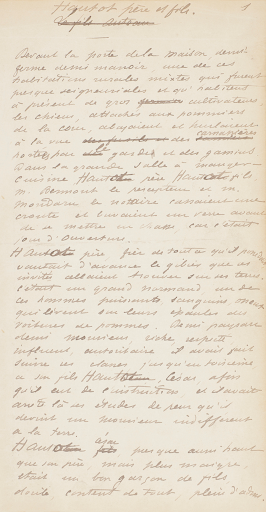 Hautot père et fils. 1
Devant la porte de la maison demi
ferme demi manoir une de ces
habitations rurales mixtes qui furent
presque seigneuriales et qu'habitent
à présent de gros cultivateurs,
les chiens, attachés aux pommiers
de la cour, aboyaient et hurlaient
à la vue des carnassières
portées par gardes et des gamins
Dans la grande salle à manger-
cuisine Hautot père Hautot fils
M. Bermont le percepteur et M.
Mondaru le notaire cassaient une
croûte et buvaient un verre avant
de se mettre en chasse car c'était
jour d'ouverture.
Hautot père fier de tout ce qu'il possédait
vantait d'avance le gibier que ses
invités allaient trouver sur ses terres.
C'était un grand normand un de
ces hommes puissants sanguins osseux
qui lèvent sur leurs épaules des
voitures de pommes. Demi paysan
demi monsieur, riche respecté
influent, autoritaire il avait fait
suivre ses classes jusqu'en troisième
à son fils Hautot César afin
qu'il eut de l'instruction et il avait
arrêté là ses études de peur qu'il
devint un monsieur indifférent
à la terre.
Hautot César presque aussi haut
que son père, mais plus maigre,
était un bon garçon de fils
docile content de tout, plein d'adm.